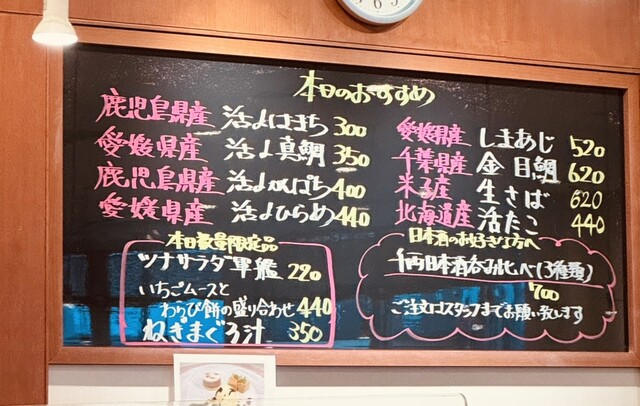 本日のおすすめ
鹿児島県産 活〆はまち 300
愛媛県産 活〆真鯛 350
鹿児島県産 活〆かんぱち 400
愛媛県産 活〆ひらめ 440
愛媛県産 しまあじ 520
千葉県産 金目鯛 620
米子産 生さば 620
北海道産 活たこ 440
本日数量限定品
ツナサラダ軍艦 220
いちごムースと
わらび餅の盛り合わせ 440
ねぎまぐろ汁 350
日本酒のお好きな方へ
日本酒呑み比べ(3種類)
700
ご注文はスタッフまでお願い致します